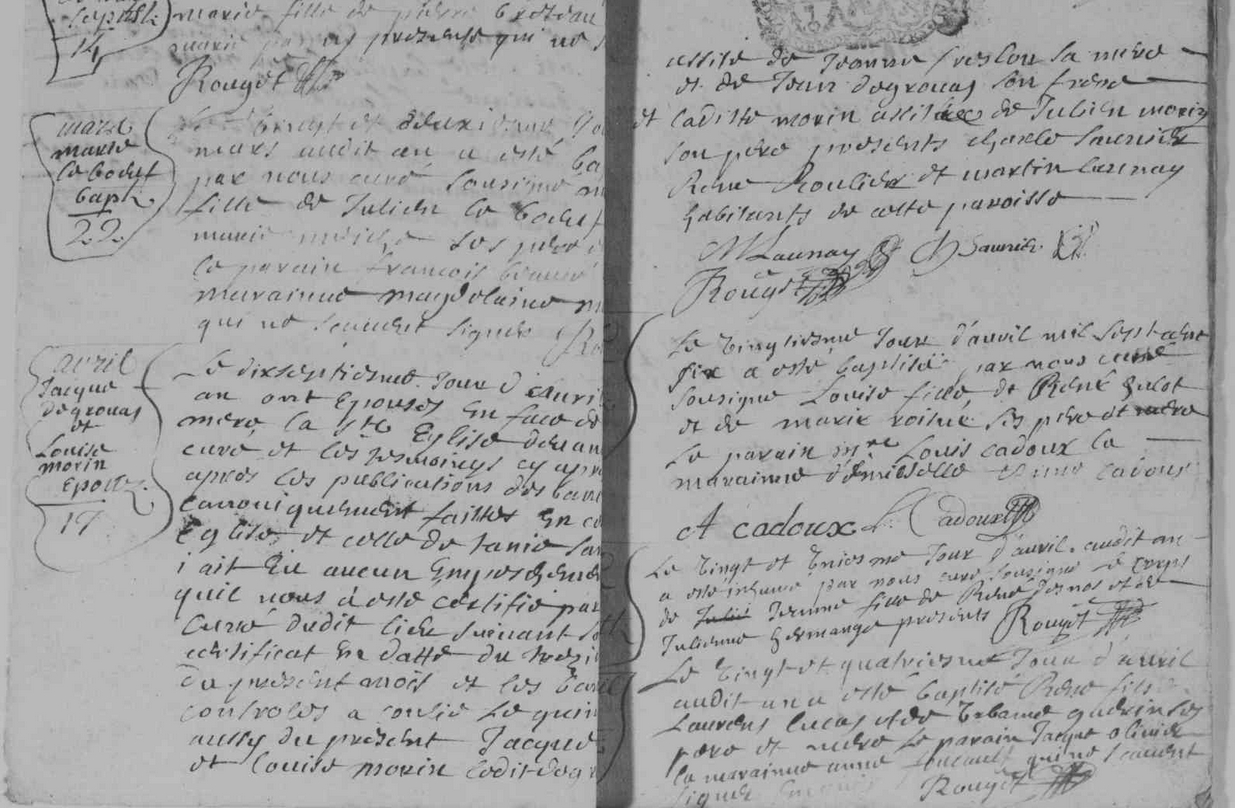 marie fille de pierre
14
Rouget
mars
marie
le boeuf
baph
22
Le vingt et deuxiesme Jou
mars audit an a esté ba
par nous curé sousigné
fille de Julien le boeuf
marie ses père
le parain francois
marainne magdelainne
qui ne scauent signer
avril
Jacque
degrouas
et
Louise
morin
Epouz
17
Le dixseptiesme Jour d'Auril
an ont Epousés En face de
mere la Ste Eglise deuan
curé et les tesmoings cy apr
apres les publications des ban
canoniquement faittes En ce
Eglise et celle de
i ait Eu aucun Empeschemen
quil nous a esté certifié par
Curé dudit lieu suiuant so
certificat En datte du trezi
du present mois et les ban
controlés a le quin
aussy du présent Jacque
et Louise morin ledit degr
assité de Jeanne sa mere
et de Jean degrouas son frere
et ladiste morin assitée de Julien morin
son pere presents charle Saunier
Rene Roulier et martin Launay
habitants de cette paroisse
M Launay Ch Saunier
Rouget
Le vingtiesme Jour d'auril mil sept cent
six a esté baptisée par nous curé
sousigné Louise fille de René
et de marie ses père et mère
Le parain Mre Louis cadoux la
marainne demieselle anne cadoux
A cadoux L. Cadoux
Le vingt et Vniesme Jour d'auril audit an
a esté inhumé par nous curé sousigné Le corps
de fille de René et de
Julienne presents Rouget
Le vingt et quatriesme Jour d'auril
audit an a esté baptisé René fils
Laurens Lucas et de Vrbanne guerin ses
pere et mere Le parain Jacque oliuier
La marainne anne foucault qui ne scauent
signer Rouget